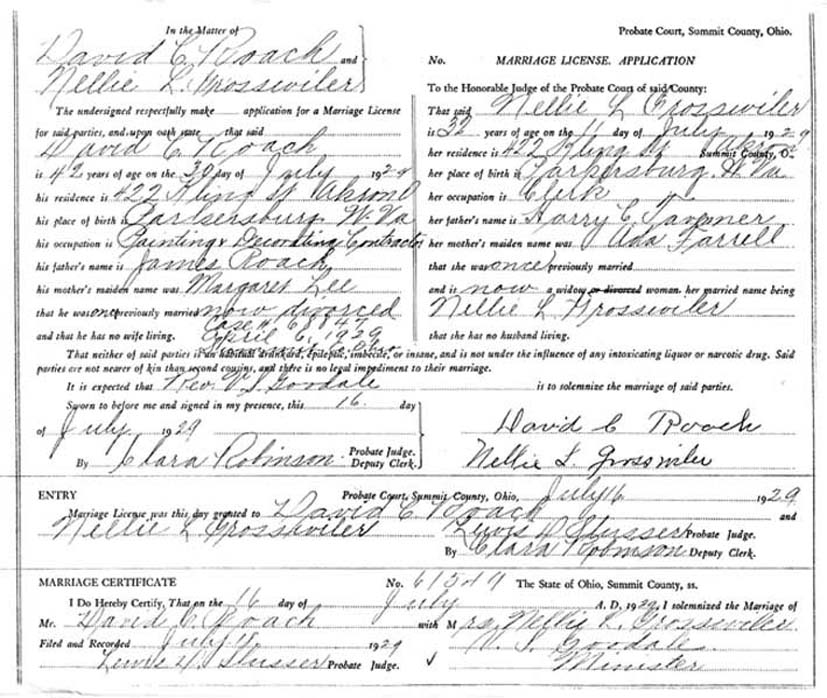 In the Matter of
David C. Roach and
Nellie L. Grosswiler
The undersigned respectfully make application for a Marriage License
for said parties, and upon oath state that said
David C. Roach
is 42 years of age on the 30 day of July 1929
his residence is 422 Kling St Akron O
his place of birth is Parkersburg W. Va
his occupation is Painting & Decorating Contractor
his father's name is James Roach
his mother's maiden name was Margaret Lee
that he was once previously married now divorced
Case # 68847
and that he has no wife living. April 6, 1929
Probate Court, Summit County, Ohio.
No. MARRIAGE LICENSE. APPLICATION
To the Honorable Judge of the Probate Court of said County:
That said Nellie L Grosswiler
is 32 years of age on the 11 day of July 1929
her residence is 422 Kling St Akron Summit County, O.
her place of birth is Parkersburg W. Va
her occupation is Clerk
her father's name is Harry C. Tavener
her mother's maiden name was Ada Farrell
that she was once previously married
and is now a widow or divorced woman. her married name being
Nellie L Grosswiler
that she has no husband living.
That neither of said parties is an habitual drunkard, epileptic, imbecile, or insane, and is not under the influence of any intoxicating liquor or narcotic drug. Said
parties are not nearer of kin than second cousins, and there is no legal impediment to their marriage.
It is expected that Rev. V. S. Goodale is to solemnize the marriage of said parties.
Sworn to before me and signed in my presence, this 16 day
of July 1929
Probate Judge.
By Clara Robinson Deputy Clerk.
David C Roach
Nellie L. Grosswiler
ENTRY Probate Court, Summit County, Ohio, July 16 1929
Marriage License was this day granted to David C. Roach and
Nellie L Grosswiler Lewis D Slusser Probate Judge.
By Clara Robinson Deputy Clerk.
MARRIAGE CERTIFICATE No. 61549 The State of Ohio, Summit County, ss.
I Do Hereby Certify, That on the 16 day of July A. D. 1929, I solemnized the Marriage of
Mr. David C. Roach with Mrs. Nellie L. Grosswiler
Filed and Recorded July 18 1929 V. S. Goodale
Lewis D. Slusser Probate Judge. Minister